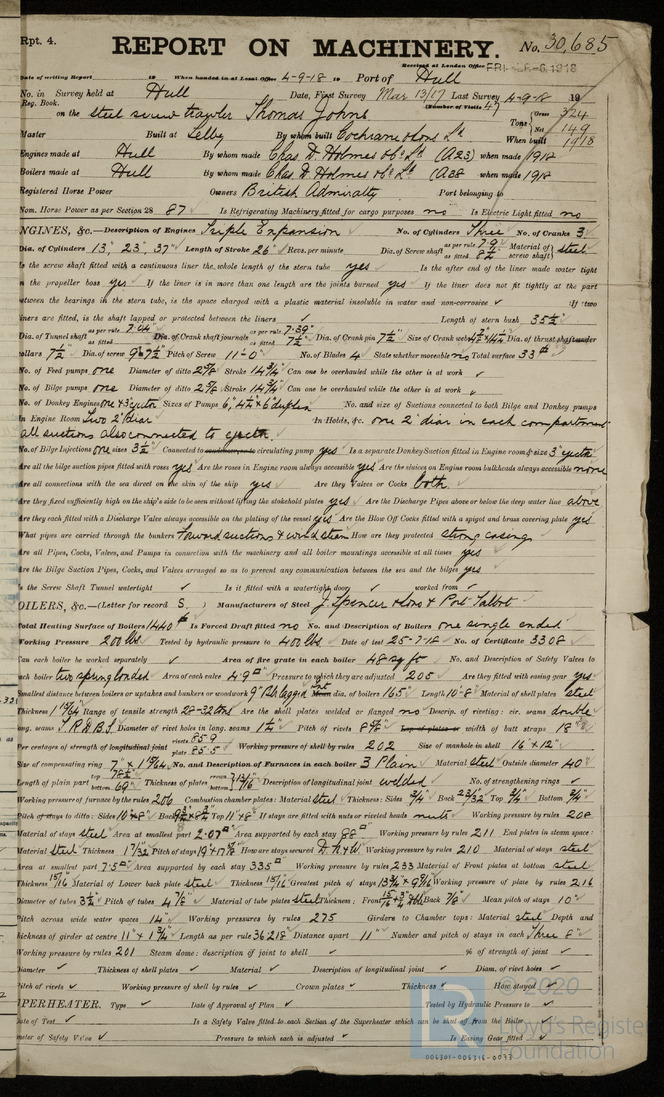 Rpt. 4.
REPORT ON MACHINERY. No. 30,685
Received at London Office FRI. 6, 1918
Date of writing Report 19 When handed in at Local Office 4-9-18 19 Port of Hull
No. in Survey held at Hull Date, First Survey Mar 13/17 Last Survey 4-9-18 19
Reg. Book. (Number of Visits 47
on the steel screw trawler Thomas Johns Tons { Gross 324 Net 149
Master Built at Selby By whom built Cochrane & Sons Ld When built 1918
Engines made at Hull By whom made Chas D. Holmes & Co Ld (A23) when made 1918
Boilers made at Hull By whom made Chas D. Holmes & Co Ld (A38 when made 1918
Registered Horse Power Owners British Admiralty Port belonging to
Nom. Horse Power as per Section 28 87 Is Refrigerating Machinery fitted for cargo purposes no Is Electric Light fitted no
NGINES, &c.—Description of Engines Triple Expansion No. of Cylinders Three No. of Cranks 3
Dia. of Cylinders 13", 23", 37" Length of Stroke 26" Revs. per minute Dia. of Screw shaft as per rule 7.9 as fitted 8½ Material of screw shaft steel
Is the screw shaft fitted with a continuous liner the whole length of the stern tube yes Is the after end of the liner made water tight
in the propeller boss yes If the liner is in more than one length are the joints burned yes If the liner does not fit tightly at the part
between the bearings in the stern tube, is the space charged with a plastic material insoluble in water and non-corrosive ✓ If two
liners are fitted, is the shaft lapped or protected between the liners ✓ Length of stern bush 35½"
Dia. of Tunnel shaft as per rule 7.04 as fitted Dia. of Crank shaft journals as per rule 7.39" as fitted 7½" Dia. of Crank pin 7½" Size of Crank webs Dia. of thrust shaft under
collars 7½" Dia. of screw 9'-7½" Pitch of Screw 11'-0" No. of Blades 4 State whether moveable no Total surface 33
No. of Feed pumps one Diameter of ditto 2⅝ Stroke 14¾" Can one be overhauled while the other is at work ✓
No. of Bilge pumps one Diameter of ditto 2⅝ Stroke 14¾" Can one be overhauled while the other is at work ✓
No. of Donkey Engines one & 3" ejector Sizes of Pumps 6", 4½" x 6" duplex No. and size of Suctions connected to both Bilge and Donkey pumps
In Engine Room Two 2" diar In Holds, &c. one 2" diar in each compartment
all suctions also connected to ejector
No. of Bilge Injections one sizes 3½" Connected to circulating pump yes Is a separate Donkey Suction fitted in Engine room & size 3" ejector
Are all the bilge suction pipes fitted with roses yes Are the roses in Engine room always accessible yes Are the sluices on Engine room bulkheads always accessible none
Are all connections with the sea direct on the skin of the ship yes Are they Valves or Cocks both
Are they fixed sufficiently high on the ship's side to be seen without lifting the stokehold plates yes Are the Discharge Pipes above or below the deep water line above
Are they each fitted with a Discharge Valve always accessible on the plating of the vessel yes Are the Blow Off Cocks fitted with a spigot and brass covering plate yes
What pipes are carried through the bunkers Forward suctions & winch steam How are they protected strong casings
Are all Pipes, Cocks, Valves, and Pumps in connection with the machinery and all boiler mountings accessible at all times yes
Are the Bilge Suction Pipes, Cocks, and Valves arranged so as to prevent any communication between the sea and the bilges yes
Is the Screw Shaft Tunnel watertight ✓ Is it fitted with a watertight door ✓ worked from ✓
OILERS, &c.—(Letter for record S. ) Manufacturers of Steel J. Spencer & Sons & Port Talbot
Total Heating Surface of Boilers 1440 Is Forced Draft fitted no No. and Description of Boilers one single ended
Working Pressure 200 lbs Tested by hydraulic pressure to 400 lbs Date of test 25-7-18 No. of Certificate 3308
Can each boiler be worked separately ✓ Area of fire grate in each boiler 48 sq ft No. and Description of Safety Valves to
each boiler two spring loaded Area of each valve 4.9 Pressure to which they are adjusted 205 Are they fitted with easing gear yes
Smallest distance between boilers or uptakes and bunkers or woodwork 9" Bk lagged Int dia. of boilers 165" Length 10'-8" Material of shell plates steel
Thickness Range of tensile strength 28-32 tons Are the shell plates welded or flanged no Descrip. of riveting: cir. seams double
long. seams T.R.D.B.S. Diameter of rivet holes in long. seams 1¼" Pitch of rivets 8⅝" width of butt straps 18
Per centages of strength of longitudinal joint rivets 85.9 plate 85.5 Working pressure of shell by rules 202 Size of manhole in shell 16" x 12"
Size of compensating ring 7" x No. and Description of Furnaces in each boiler 3 Plain Material steel Outside diameter 40"
Length of plain part top 78½" bottom 69" Thickness of plates crown bottom 13/16" Description of longitudinal joint welded No. of strengthening rings ✓
Working pressure of furnace by the rules 206 Combustion chamber plates: Material steel Thickness: Sides ¾" Back 23/32" Top ¾" Bottom ¾"
Pitch of stays to ditto: Sides 10" x 8" Back Top 11" x 8" If stays are fitted with nuts or riveted heads nuts Working pressure by rules 208
Material of stays steel Area at smallest part 2.07 Area supported by each stay 88 Working pressure by rules 211 End plates in steam space:
Material steel Thickness 1 7/32 Pitch of stays 19" x 17⅝" How are stays secured D.N.&W. Working pressure by rules 210 Material of stays steel
Area at smallest part 7.5 Area supported by each stay 335 Working pressure by rules 233 Material of Front plates at bottom steel
Thickness 15/16 Material of Lower back plate steel Thickness 15/16" Greatest pitch of stays Working pressure of plate by rules 216
Diameter of tubes 3½" Pitch of tubes 4⅞" Material of tube plates steel Thickness: Front Back ⅞" Mean pitch of stays 10"
Pitch across wide water spaces 14" Working pressures by rules 275 Girders to Chamber tops: Material steel Depth and
thickness of girder at centre 11" x 1¾" Length as per rule Distance apart 11" Number and pitch of stays in each Three 8"
Working pressure by rules 201 Steam dome: description of joint to shell ✓ % of strength of joint ✓
Diameter ✓ Thickness of shell plates ✓ Material ✓ Description of longitudinal joint ✓ Diam. of rivet holes ✓
Pitch of rivets ✓ Working pressure of shell by rules ✓ Crown plates ✓ Thickness ✓ How stayed ✓
UPERHEATER. Type ✓ Date of Approval of Plan ✓ Tested by Hydraulic Pressure to ✓
Date of Test ✓ Is a Safety Valve fitted to each Section of the Superheater which can be shut off from the Boiler
meter of Safety Valve ✓ Pressure to which each is adjusted ✓ Is Easing Gear fitted ✓
© 2020
LR
Lloyd's Register
Foundation
006301-006316-0033